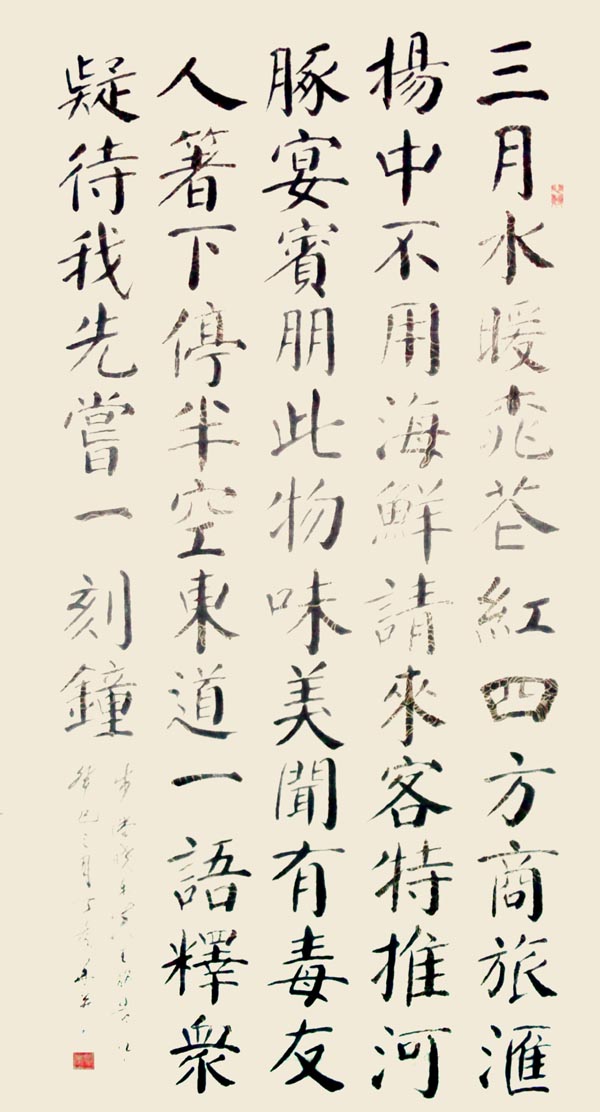 三月水暖桃花紅四方商旅滙
揚中不用海鮮請來客特推河
豚宴賓朋此物味美聞有毒友
人箸下停半空東道一語釋眾
疑待我先嘗一刻鐘
癸巳三月